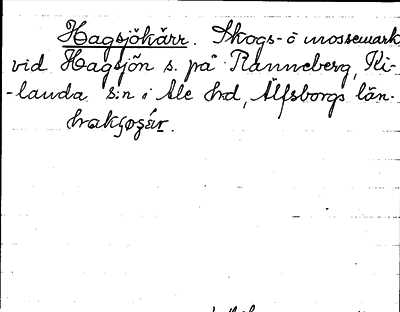 Hagsjökärr. Skogs- o mossemark
vid Hagsjön s. på Ranneberg, Ki-
-landa s:n i Ale hrd, Älfsborgs län.